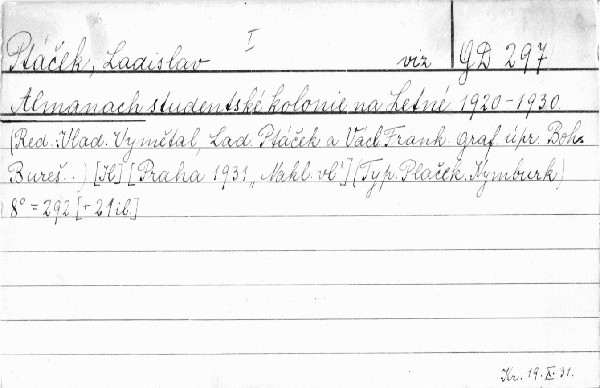 I
Ptáček, Ladislav viz GD 297
Almanach studentské kolonie na Letné 1920-1930.
(Red.: Vlad. Vymětal, Lad. Ptáček a Václ. Frank. Graf. úpr. Boh.
Bureš..) [K] [Praha 1931, Nakl. vl.] (Typ. Plaček. Nymburk)
8° = 292 [+ 21 ib.]
Kr. 19.X.31.